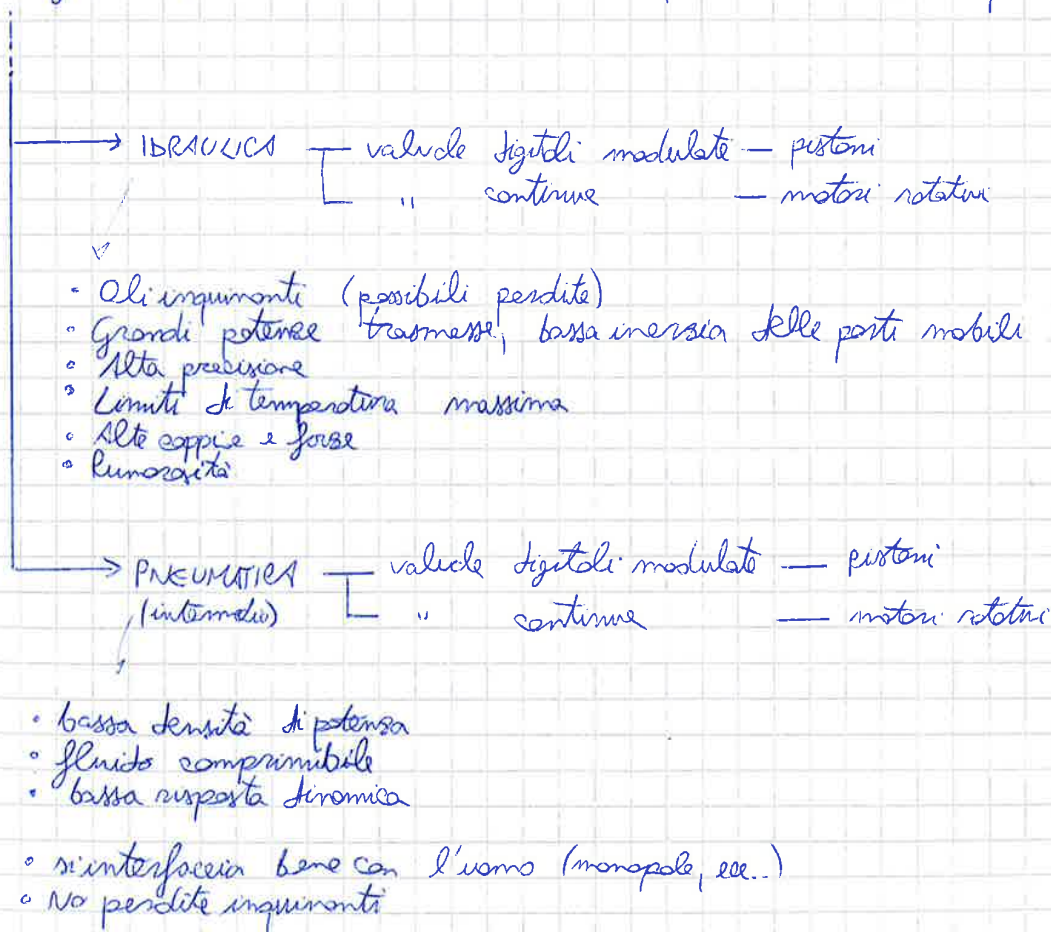 IDRAULICA — valvole digitali modulate — pistoni
" continue — motori rotativi
• Oli inquinanti (possibili perdite)
• Grandi potenze trasmesse, bassa inerzia delle parti mobili
• Alta precisione
• Limiti di temperatura massima
• Alte coppie e forze
• Rumorosità
PNEUMATICA — valvole digitali modulate — pistoni
(intermedio) " continue — motori rotativi
• bassa densità di potenza
• fluido comprimibile
• bassa risposta dinamica
• si interfaccia bene con l'uomo (monopole, ecc..)
• No perdite inquinanti